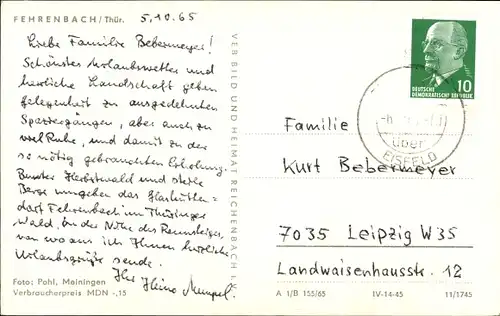 FEHRENBACH/Thür.
5.10.65
Liebe Familie Bebermeyer!
Schönstes Urlaubswetter und
herrliche Landschaft geben
Gelegenheit zu ausgedehnten
Spaziergängen, aber auch zu
viel Ruhe, und damit zu der
so nötig gebrauchten Erholung.
Bunter Herbstwald und steile
Berge umgeben das Glashütten=
dorf Fehrenbach im Thüringer
Wald, in der Nähe des Rennsteiges,
von wo aus ich Ihnen herzliche
Urlaubsgrüße sende.
Ihr Heino Mempel.
Foto: Pohl, Meiningen
Verbraucherpreis MDN -,15
VEB BILD UND HEIMAT REICHENBACH I. V.
10
DEUTSCHE
DEMOKRATISCHE REPUBLIK
über
EISFELD
Familie
Kurt Bebermeyer
7035 Leipzig W35
Landwaisenhausstr. 12
A 1/B 155/65 IV-14-45 11/1745